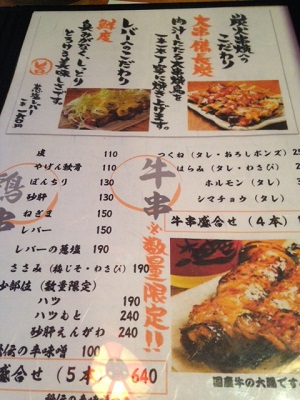 炭火串焼への
こだわり
大串・備長炭
肉汁したたる大串焼鳥を
一本一本丁寧に焼き上げます。
レバーへのこだわり
鮮度
臭みがなく、しっとり
とろける美味しさです。
葱塩レバー
皮 110
やげん軟骨 110
ぼんちり 130
砂肝 130
ねぎま 150
レバー 150
レバーの葱塩 190
ささみ（梅じそ・わさび） 190
少部位（数量限定）
ハツ 190
ハツもと 240
砂肝えんがわ 240
伝の辛味噌 100
盛合せ（5本） 640
牛串
※数量限定!!
つくね（タレ・おろしポンズ）
はらみ（タレ・わさび）
ホルモン（タレ）
シマチョウ（タレ）
牛串盛合せ（4本）
国産牛の大腸です